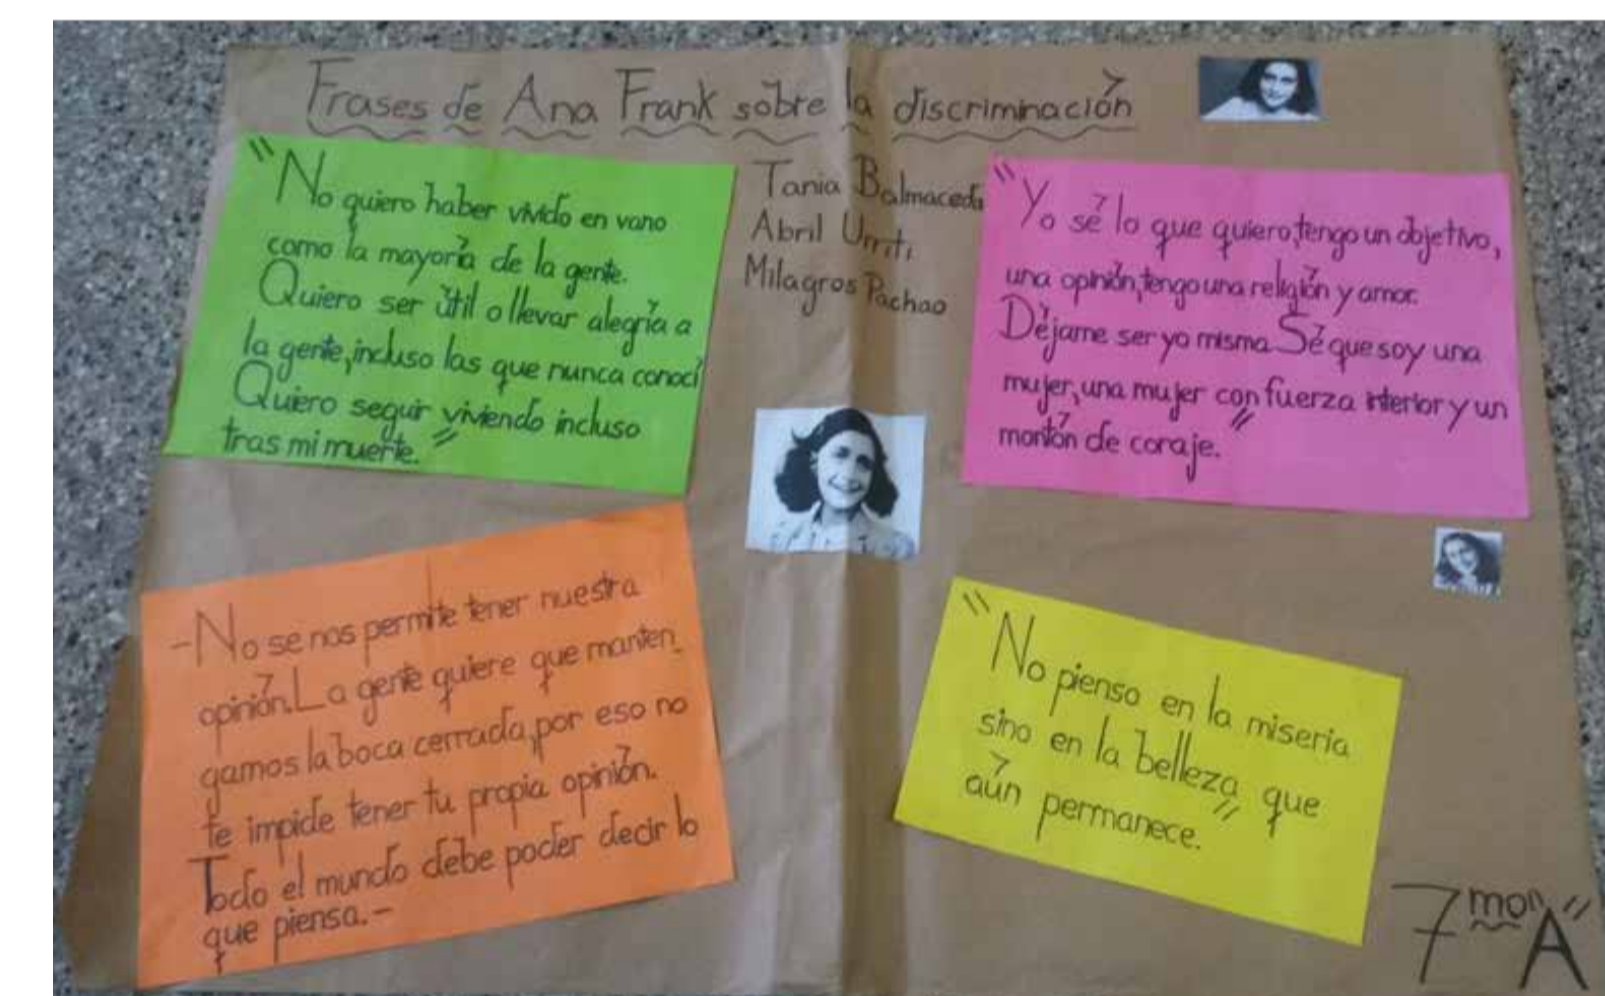 Frases de Ana Frank sobre la discriminación
"No quiero haber vivido en vano
como la mayoría de la gente.
Quiero ser útil o llevar alegría a
la gente, incluso las que nunca conocí
Quiero seguir viviendo incluso
tras mi muerte."
Tania Balmaceda
Abril Urriti
Milagros Pachao
"Yo sé lo que quiero, tengo un objetivo,
una opinión, tengo una religión y amor.
Déjame ser yo misma. Sé que soy una
mujer, una mujer con fuerza interior y un
montón de coraje."
-No se nos permite tener nuestra
opinión. La gente quiere que manten_
gamos la boca cerrada, por eso no
te impide tener tu propia opinión.
Todo el mundo debe poder decir lo
que piensa.-
"No pienso en la miseria
sino en la belleza que
aún permanece."
7mo "A"